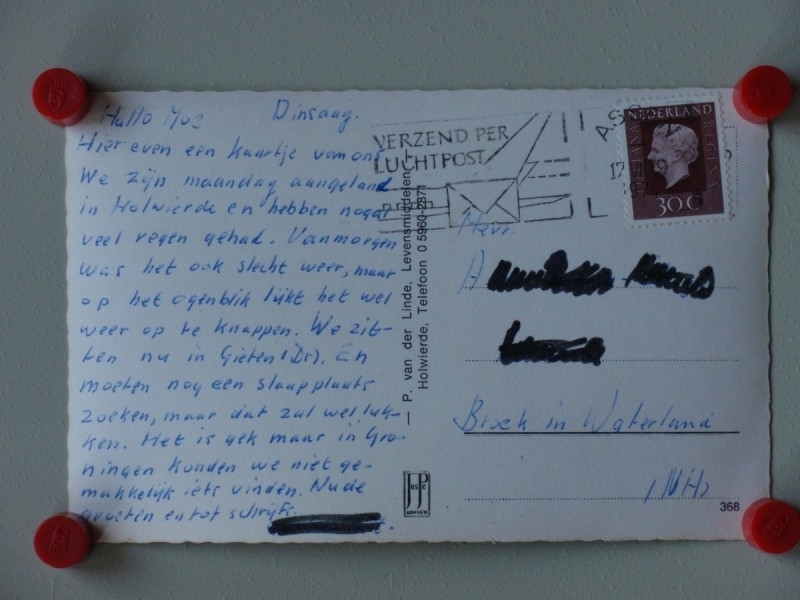 Hallo Dinsdag.
Hier even een kaartje van ons
We zijn maandag aangeland
in Holwierde en hebben nogal
veel regen gehad. Vanmorgen
was het ook slecht weer, maar
op het ogenblik lijkt het wel
weer op te knappen. We zit-
ten nu in Gieten (Dr). En
moeten nog een slaapplaats
zoeken, maar dat zal wel luk-
ken. Het is gek maar in Gro-
ningen konden we niet ge-
makkelijk iets vinden. Nude
groeten en tot schrijfs.
VERZEND PER
LUCHTPOST
NEDERLAND
30 C
— P. van der Linde, Levensmiddelen
Holwierde, Telefoon 0 5960-2871
Hevr.
A
Broek in Waterland
(NH)
JosPé
ARNHEM
368